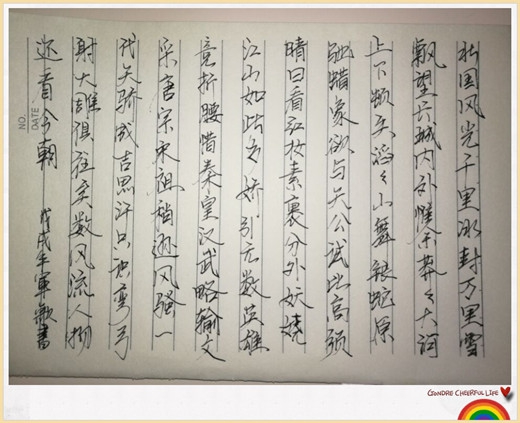 北国风光千里冰封万里雪
飘望长城内外惟余莽々大河
上下顿失滔々山舞银蛇原
驰蜡象欲与天公试比高须
晴日看红妆素裹分外妖娆
江山如此多娇引无数英雄
竞折腰惜秦皇汉武略输文
采唐宗宋祖稍逊风骚一
代天骄成吉思汗只识弯弓
射大雕俱往矣数风流人物
还看今朝 戊戌年軍歌書
NO.
DATE
GONDRE CHEERFUL LIFE